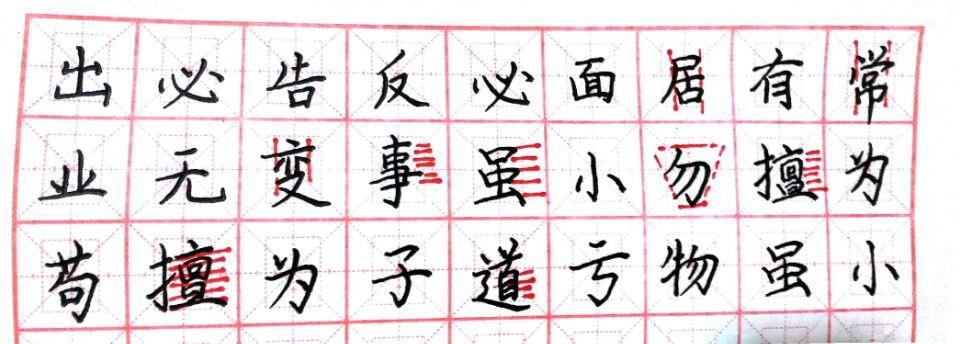 出必告反必面居有常
业无变事虽小勿擅为
苟擅为子道亏物虽小